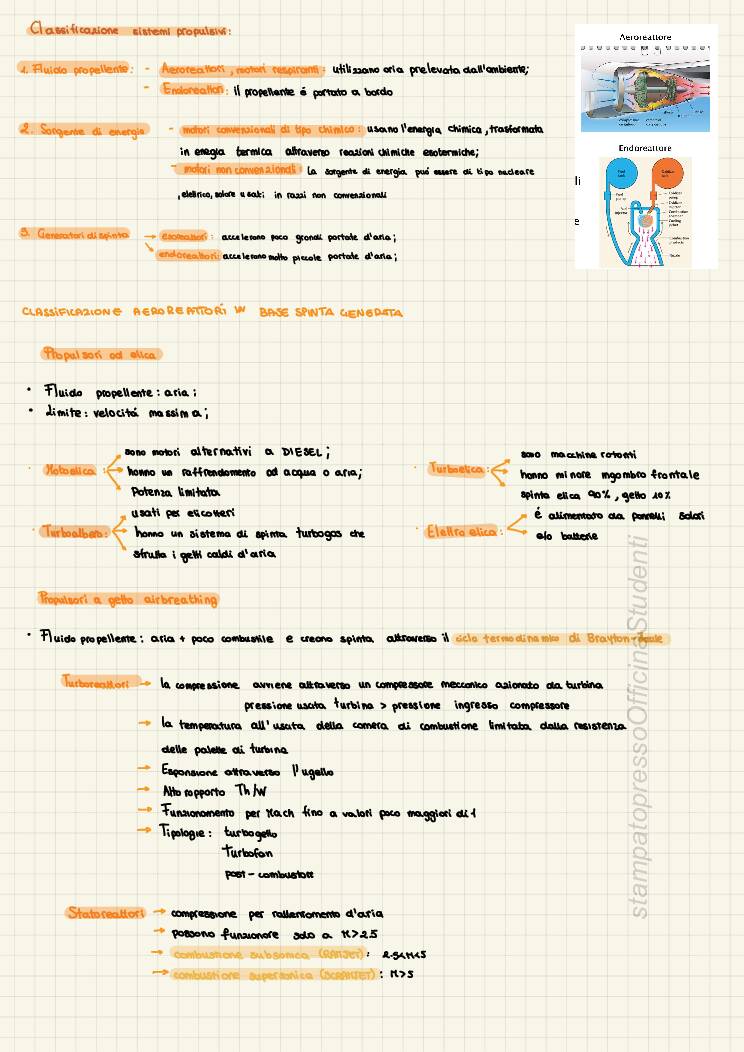 Classificazione sistemi propulsivi:
Aeroreattore
1. Fluido propellente: - Aeroreattori, motori respiranti: utilizzano aria prelevata dall'ambiente;
- Endoreattori: il propellente é portato a bordo
2. Sorgente di energia - motori convenzionali di tipo chimico: usano l'energia chimica, trasformata
in enegia termica attraverso reazioni chimiche esotermiche;
- motori non convenzionali la sorgente di energia puó essere di tipo nucleare
, elettrico, solare usati in razzi non convenzionali
Endoreattore
li
e
3. Generatori di spinta → esoreattori: accelerano poco grandi portate d'aria;
endoreattori: accelerano molto piccole portate d'aria;
CLASSIFICAZIONE AEROREATTORI IN BASE SPINTA GENERATA
Propulsori ad elica
• Fluido propellente: aria;
• Limite: velocitá massima;
• Motoelica: sono motori alternativi a DIESEL;
hanno un raffrendamento ad acqua o aria;
Potenza limitata
• Turboelica: sono macchine rotanti
hanno minore ingombro frontale
spinta elica 90%, getto 10%
• Turboalbero: usati per elicotteri
hanno un sistema di spinta turbogas che
sfrutta i getti caldi d'aria
• Elettro elica: é alimentato da pannelli solari
e/o batterie
Propulsori a getto airbreathing
• Fluido propellente: aria + poco combustile e creano spinta attraverso il ciclo termodinamico di Brayton-Joule
Turboreattori → la compressione avviene attraverso un compressore meccanico azionato da turbina
pressione usata turbina > pressione ingresso compressore
→ la temperatura all'usata della camera di combustione limitata dalla resistenza
delle palette di turbina
→ Espansione attraverso l'ugello
→ Alto rapporto Th/W
→ Funzionamento per Mach fino a valori poco maggiori di 1
→ Tipologie: turbogetto
Turbofan
post-combustori
Statoreattori → compressione per rallentamento d'aria
→ possono funzionare solo a M>2.5
→ combustione subsonica (RAMJET): 2.5<M<5
→ combustione supersonica (SCRAMJET): M>5
stampatopressoOfficinaStudenti